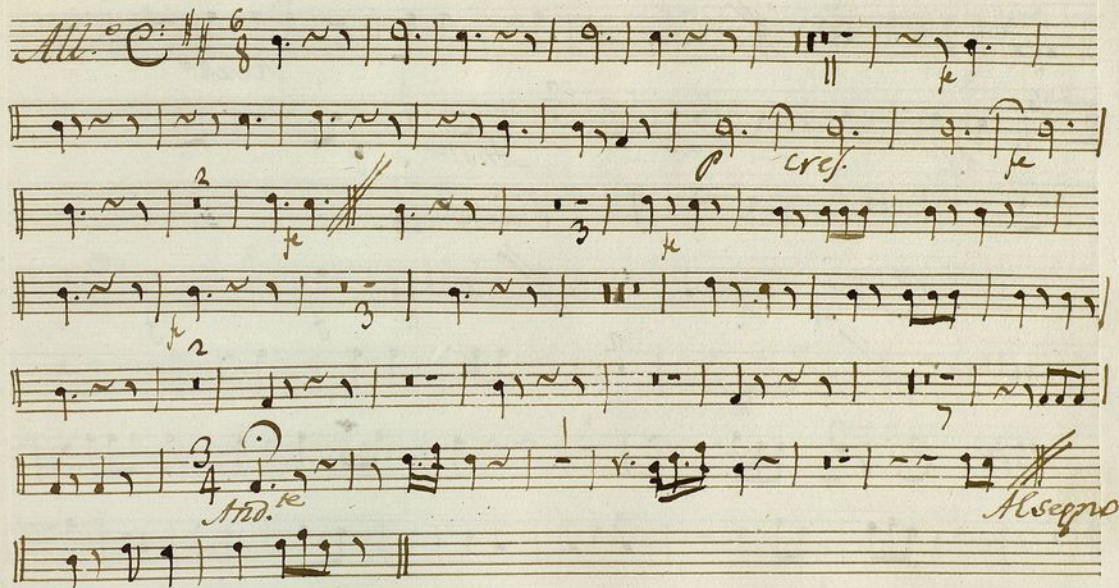 All.º C: 6/8
11
fe
p cres. fe
2
fe 3 fe
fe 3
2
7
3/4 1
And.te Al segno